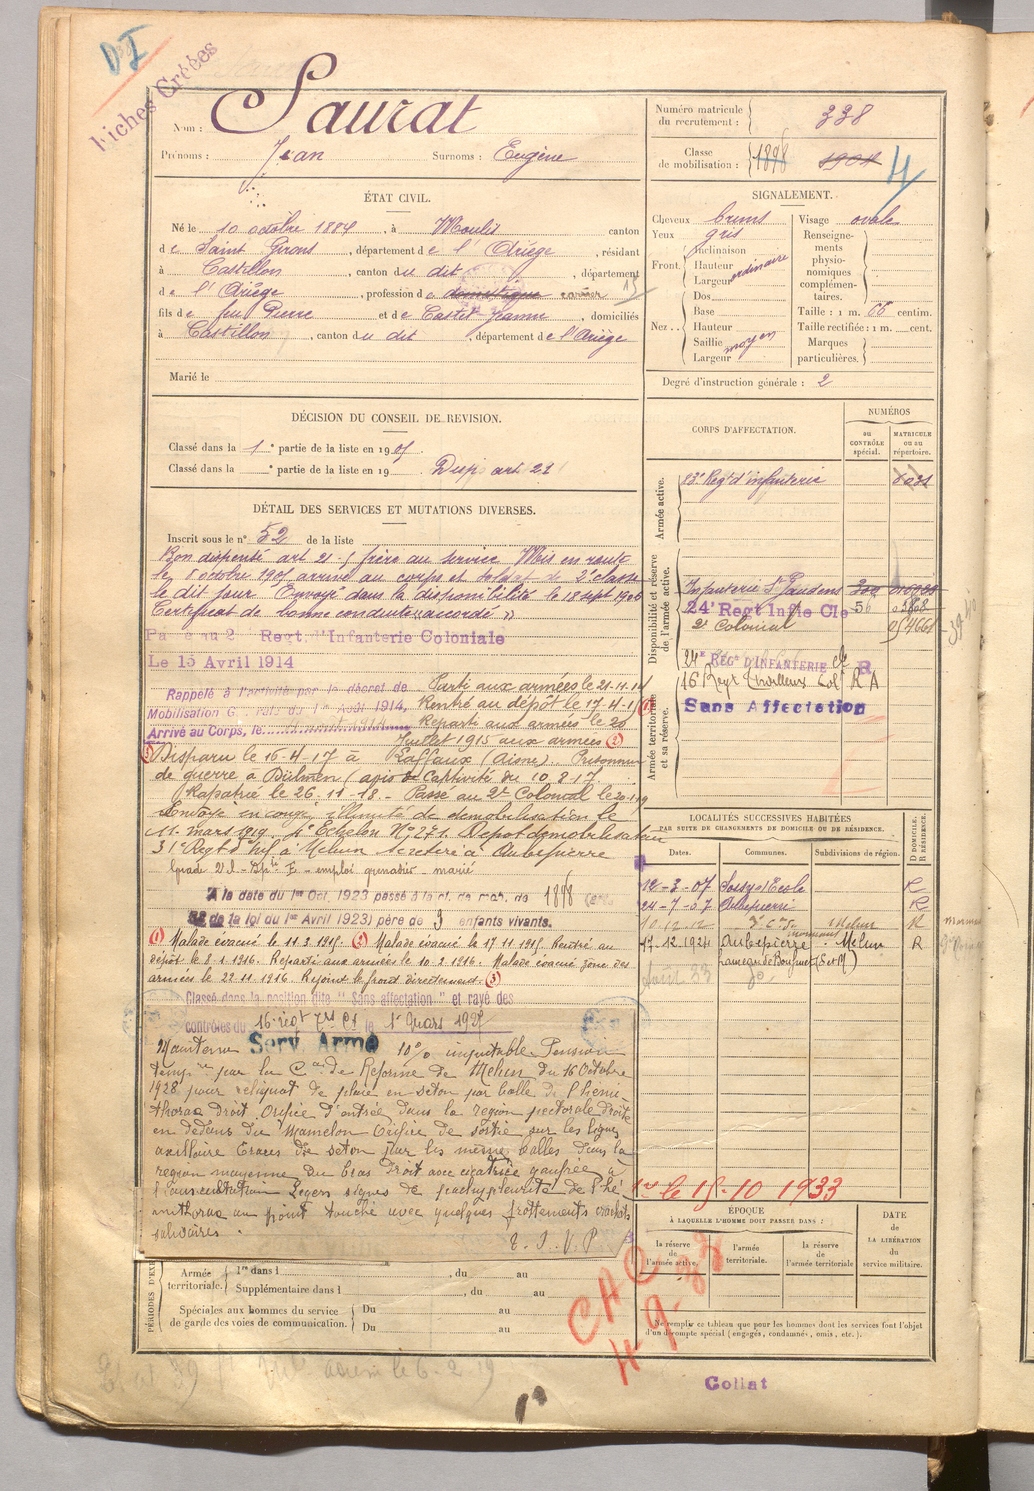 D I
Fiches Créées
Nom : Saurat
Prénoms : Jean Surnoms : Eugène
Numéro matricule du recrutement : 338
Classe de mobilisation : 1898 1904 4
ÉTAT CIVIL.
Né le 10 octobre 1884, à Moulis canton
de Saint Girons, département de l'Ariège, résidant
à Castillon, canton du dit, département
de l'Ariège, profession de domestique carrier 13
fils de feu Pierre et de Castet Jeanne, domiciliés
à Castillon, canton du dit, département de l'Ariège
Marié le
SIGNALEMENT.
Cheveux bruns
Yeux gris
Front. Inclinaison
Hauteur
Largeur ordinaire
Nez. Dos
Base
Hauteur
Saillie moyen
Largeur
Visage ovale
Renseignements physionomiques complémentaires.
Taille : 1 m. 66 centim.
Taille rectifiée : 1 m. cent.
Marques particulières.
Degré d'instruction générale : 2
DÉCISION DU CONSEIL DE REVISION.
Classé dans la 1e partie de la liste en 1905.
Classé dans la e partie de la liste en 19 Disp art 21
DÉTAIL DES SERVICES ET MUTATIONS DIVERSES.
Inscrit sous le n° 52 de la liste
Bon dispensé art 21-5 frère au service Mis en route
le 8 octobre 1905 arrivé au corps et soldat de 2e classe
le dit jour Envoyé dans la disponibilité le 18 sept 1906
Certificat de bonne conduite "accordé"
Passé au 2e Regt. d'Infanterie Coloniale
Le 15 Avril 1914
Rappelé à l'activité par le décret de
Mobilisation Générale du 1er Août 1914,
Arrivé au Corps, le août 1914
Parti aux armées le 21-11-14
Rentré au dépôt le 17-4-15 (1)
Reparti aux armées le 20
Juillet 1915 aux armées (2)
(3) Disparu le 16-4-17 à Laffaux (Aisne). Prisonnier
de guerre à Dülmen (avis de captivité du 10.8.17.
Rapatrié le 26-11-18 - Passé au 2e Colonial le 20-1-19
Envoyé en congé illimité de démobilisation le
11 mars 1919. 4e Echelon N° 271. Dépôt démobilisateur
31e Regt d'Inf à Melun se retire à Aubepierre
Grade 2 cl - Apti F - emploi grenadier - marié
A la date du 1er Oct. 1923 passé à la cl. de mob. de 1898
58 de la loi du 1er Avril 1923) père de 3 enfants vivants.
(1) Malade évacué le 11.3.1915. (2) Malade évacué le 17.11.1915. Rentré au
dépôt le 8-1-1916. Reparti aux armées le 10-2-1916. Malade évacué zône des
armées le 22.11.1916. Rejoint le front directement. (3)
Classé dans la position dite "Sans affectation" et rayé des
contrôles du 16e régt Trs Cl le 1er Mars 1927
Maintenu Serv. Armé 10% imputable Pension
temp re par la Con de Réforme de Melun du 16 Octobre
1928 pour reliquat de plaie en séton par balle de l'hémi-
thorax droit. Orifice d'entrée dans la région pectorale droite
en dedans du Mamelon Orifice de sortie sur les lignes
axillaire Traces de séton par les mêmes balles dans la
région moyenne du bras Droit avec cicatrice gaufrée à
Légers signes de pachypleurite de l'hé
mithorax au point touché avec quelques frottements crachats
salivaires.
E. I. V. P
CORPS D'AFFECTATION.
NUMÉROS
au CONTRÔLE spécial.
MATRICULE ou au répertoire.
Armée active.
83e Regt d'infanterie
Disponibilité et réserve de l'armée active.
Infanterie St Gaudens 300
24e Regt Infie Cle 56
2e Colonial
Armée territoriale et sa réserve.
24e RÉGt D'INFANTERIE R
16 Regt Tirailleurs Col R A
Sans Affectation
LOCALITÉS SUCCESSIVES HABITÉES
PAR SUITE DE CHANGEMENTS DE DOMICILE OU DE RÉSIDENCE.
Dates. Communes. Subdivisions de région. D DOMICILE. R RÉSIDENCE.
12-3-07 Soisy s/ Ecole R
24-7-07 Aubepierre R
10.12.12 Melun R
17.12.1924 Aubepierre Melun R
hameau de (S et M)
Août 33
le 15-10 1933
ÉPOQUE
À LAQUELLE L'HOMME DOIT PASSER DANS :
la réserve de l'armée active.
l'armée territoriale.
la réserve de l'armée territoriale
DATE de LA LIBÉRATION du service militaire.
Ne remplir ce tableau que pour les hommes dont les services font l'objet
d'un décompte spécial (engagés, condamnés, omis, etc.).
Armée territoriale. 1re dans l , du au
Supplémentaire dans l , du au
Spéciales aux hommes du service de garde des voies de communication. Du au
Du au
CAC
4-9-33
Coliat